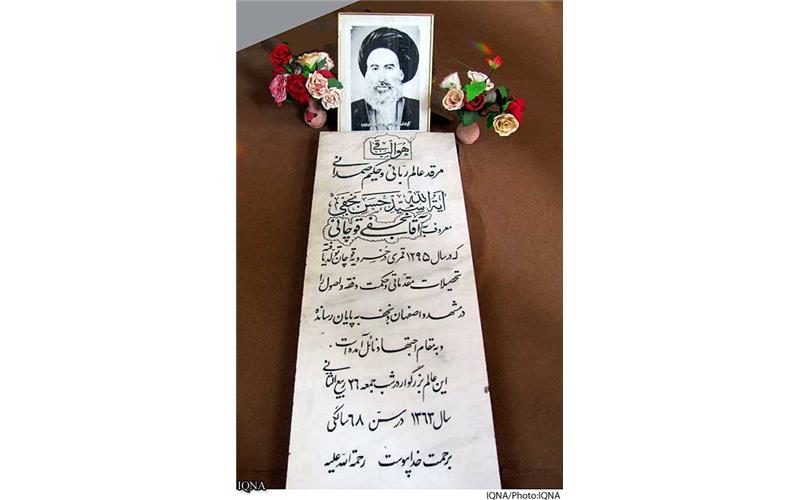 هوالباقی
مرقد عالم ربانی و حکیم صمدانی
آیة الله سید حسن نجفی
معروف به آقا نجفی قوچانی
که در سال ۱۲۹۵ قمری در خسرویه قوچان تولد یافته
تحصیلات مقدماتی و حکمت و فقه و اصول را
در مشهد و اصفهان و نجف به پایان رسانده
و به مقام اجتهاد نائل آمده است.
این عالم بزرگوار در شب جمعه ۲۶ ربیع الثانی
سال ۱۳۶۳ در سن ۶۸ سالگی
برحمت خدا پیوست رحمة الله علیه
IQNA
IQNA/Photo:IQNA